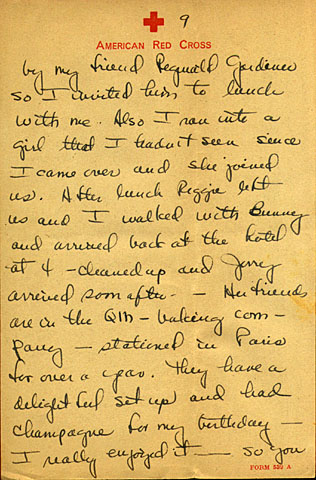 9
AMERICAN RED CROSS
by my friend Reginald Gardener
so I invited him to lunch
with me. Also I ran into a
girl that I hadn't seen since
I came over and she joined
us. After lunch Reggie left
us and I walked with Bunny
and arrived back at the hotel
at 4 - cleaned up and Jerry
arrived soon after - - Her friends
are in the QM - baking com-
pany - stationed in Paris
for over a year. They have a
delightful set up and had
champagne for my birthday -
I really enjoyed it - so you
FORM 539 A